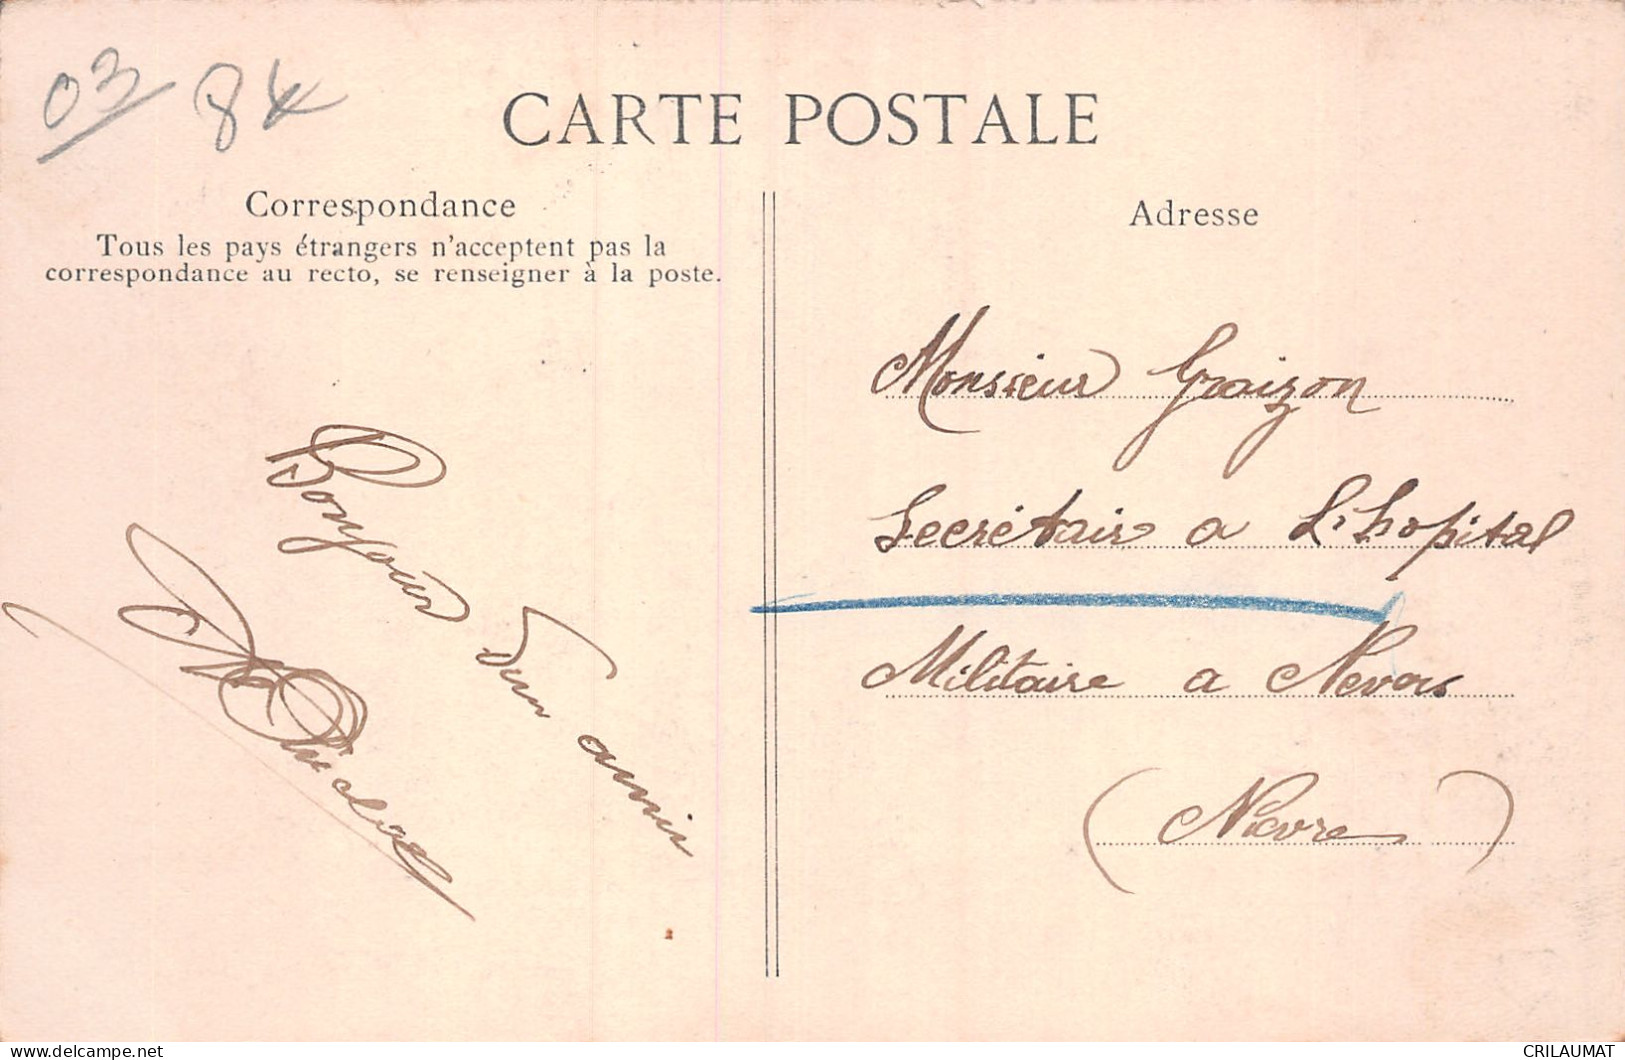 03 84
CARTE POSTALE
Correspondance
Tous les pays étrangers n'acceptent pas la
correspondance au recto, se renseigner à la poste.
Bonjour dun amis
Adresse
Monsieur Graizon
Secrétair a L'hopital
Militaire a Nevers
(Nievre)
CRILAUMAT